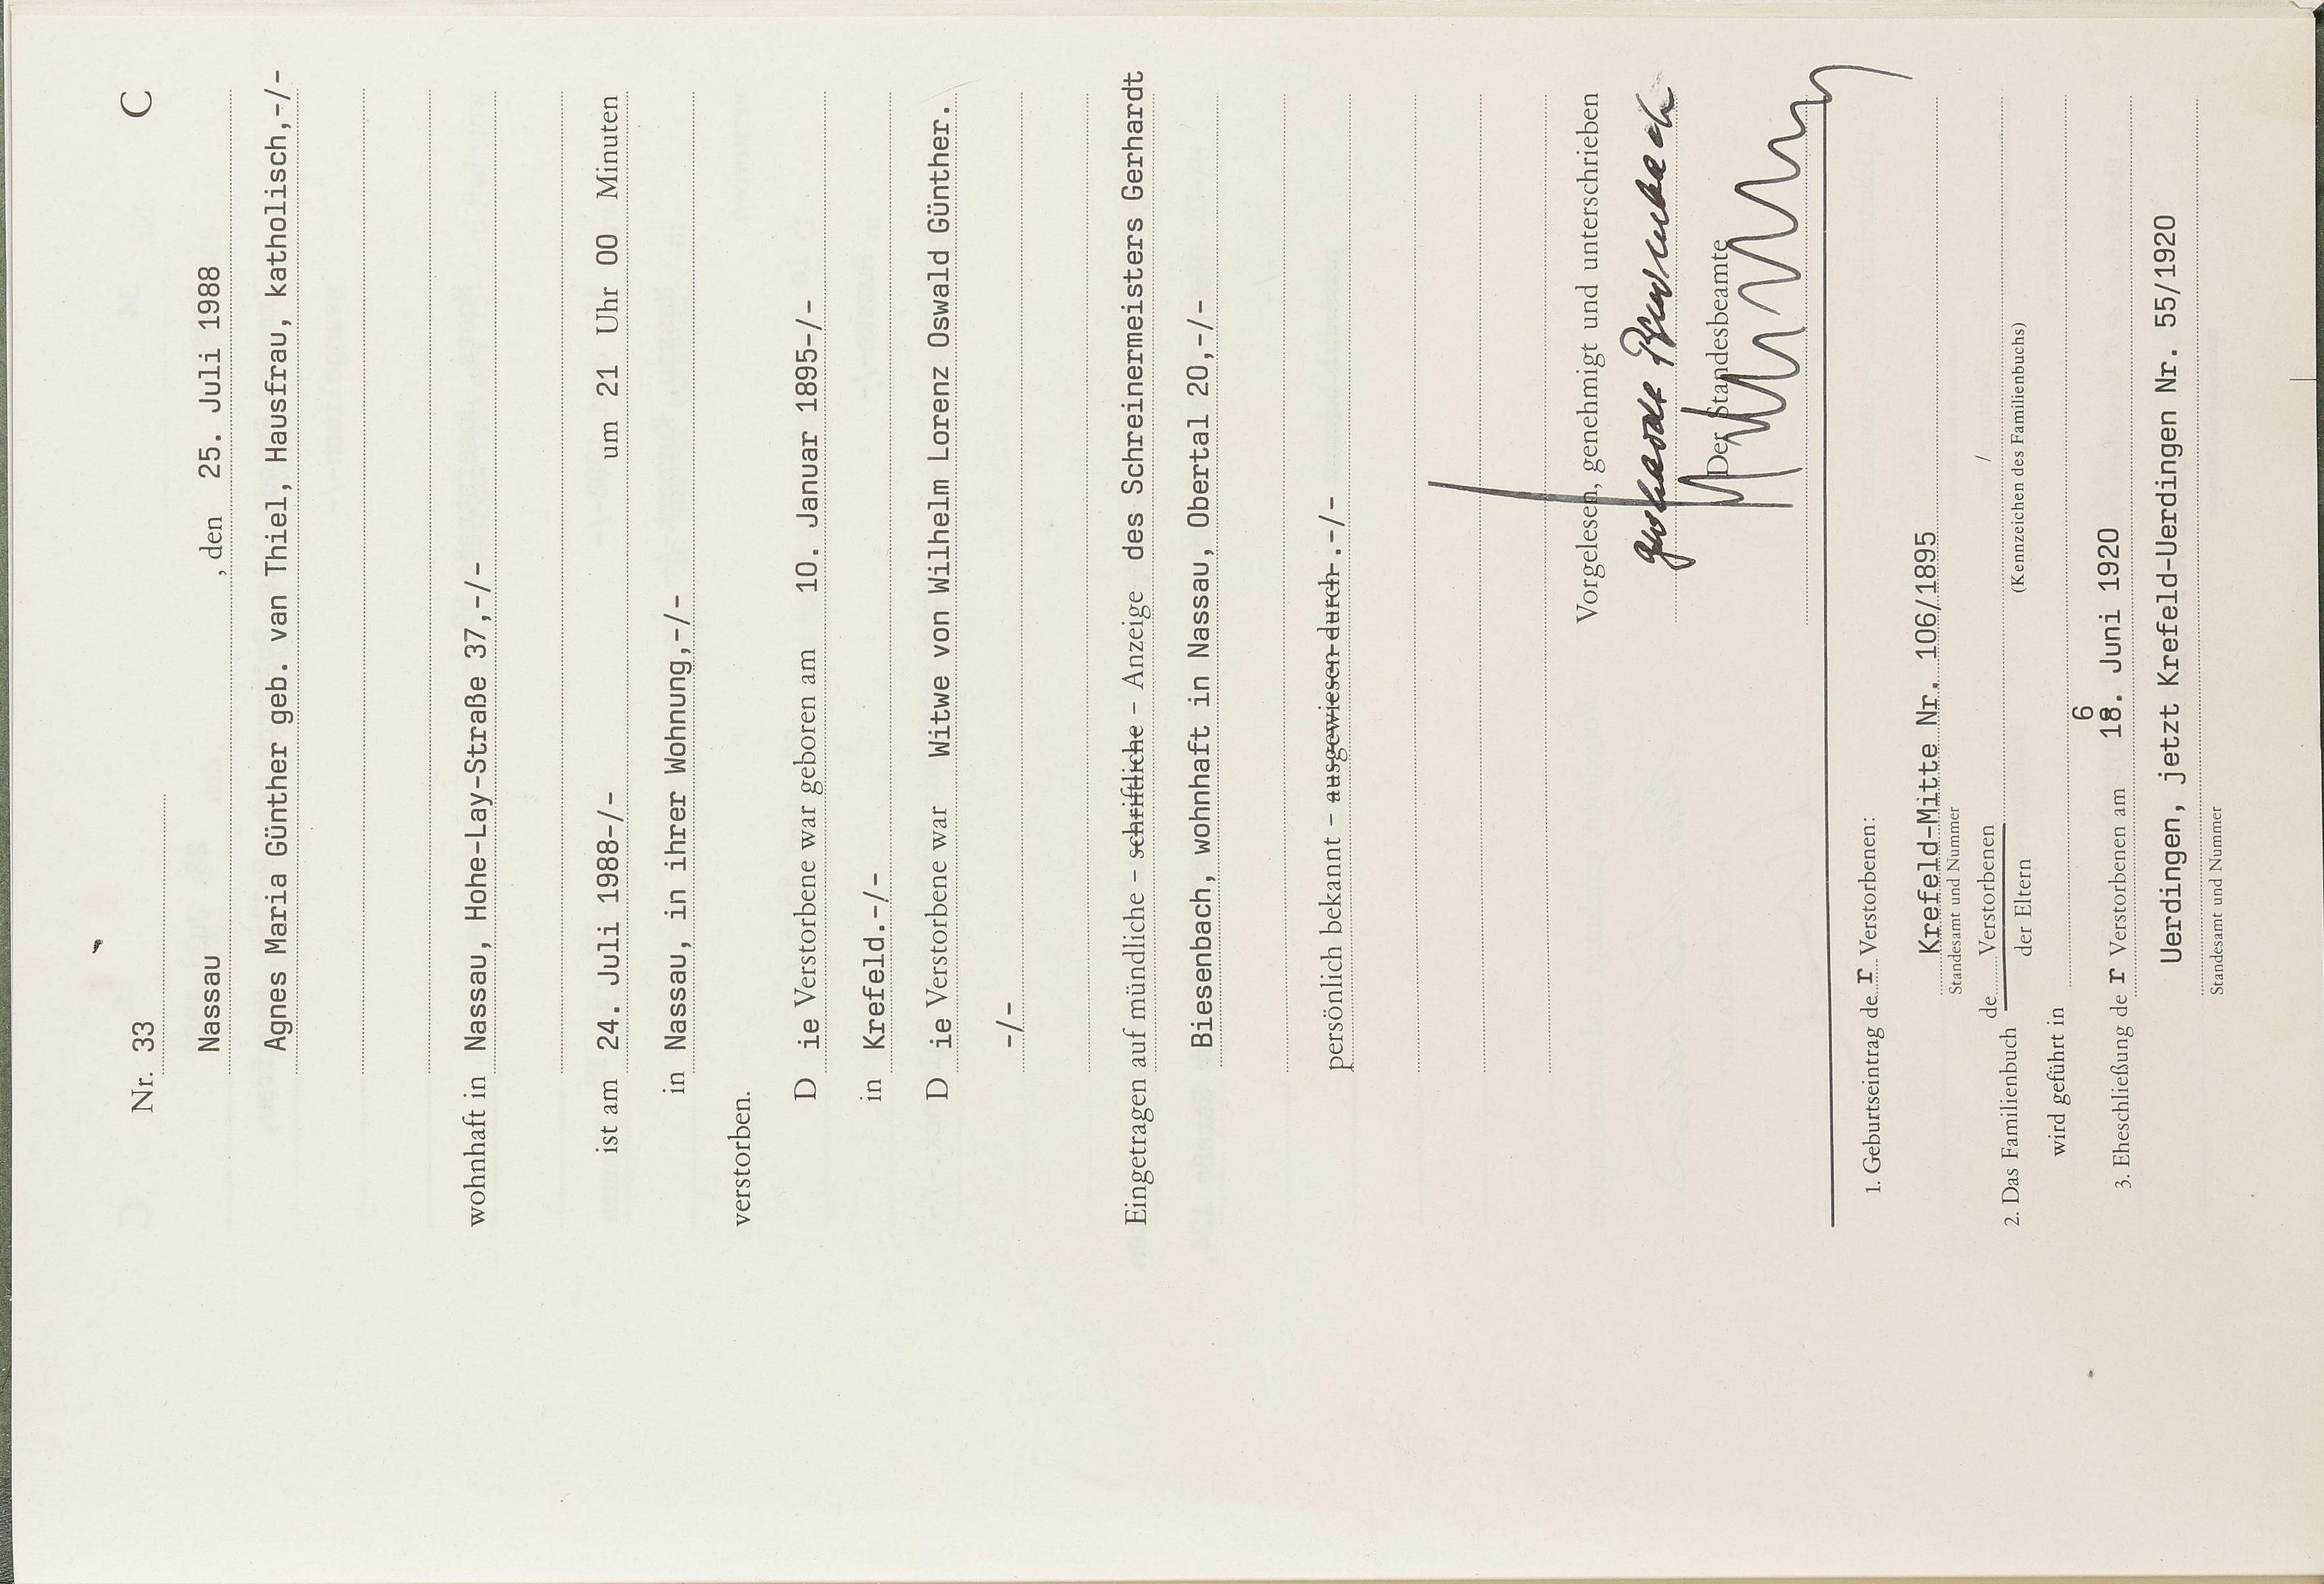 C
Nr. 33
Nassau , den 25. Juli 1988
Agnes Maria Günther geb. van Thiel, Hausfrau, katholisch,-/-
wohnhaft in Nassau, Hohe-Lay-Straße 37,-/-
ist am 24. Juli 1988-/- um 21 Uhr 00 Minuten
in Nassau, in ihrer Wohnung,-/-
verstorben.
D ie Verstorbene war geboren am 10. Januar 1895-/-
in Krefeld.-/-
D ie Verstorbene war Witwe von Wilhelm Lorenz Oswald Günther.
-/-
Eingetragen auf mündliche – schriftliche – Anzeige des Schreinermeisters Gerhardt
Biesenbach, wohnhaft in Nassau, Obertal 20,-/-
persönlich bekannt – ausgewiesen durch .-/-
Vorgelesen, genehmigt und unterschrieben
Gerhardt Biesenbach
Der Standesbeamte
1. Geburtseintrag de r Verstorbenen:
Krefeld-Mitte Nr. 106/1895
Standesamt und Nummer
2. Das Familienbuch de Verstorbenen /
der Eltern (Kennzeichen des Familienbuchs)
wird geführt in
6
3. Eheschließung de r Verstorbenen am 18. Juni 1920
Uerdingen, jetzt Krefeld-Uerdingen Nr. 55/1920
Standesamt und Nummer